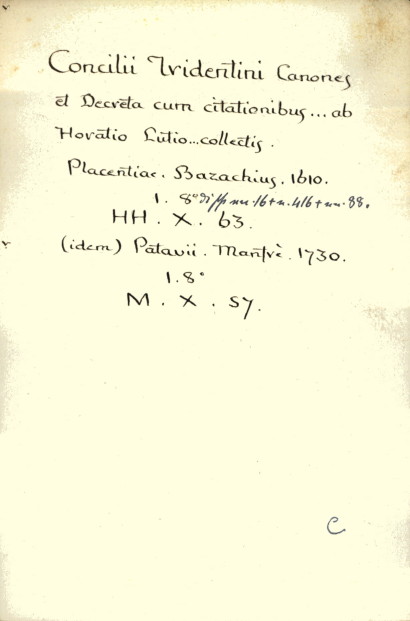 Concilii Tridentini Canones
et Decreta cum citationibus... ab
Horatio Lutio...collectis.
Placentiae. Bazachius. 1610.
1. 8° di pp nn. 16+n. 416+nn. 88.
HH. X. 63.
(idem) Patavii. Manfrè. 1730.
1. 8°
M. X. 57.
C